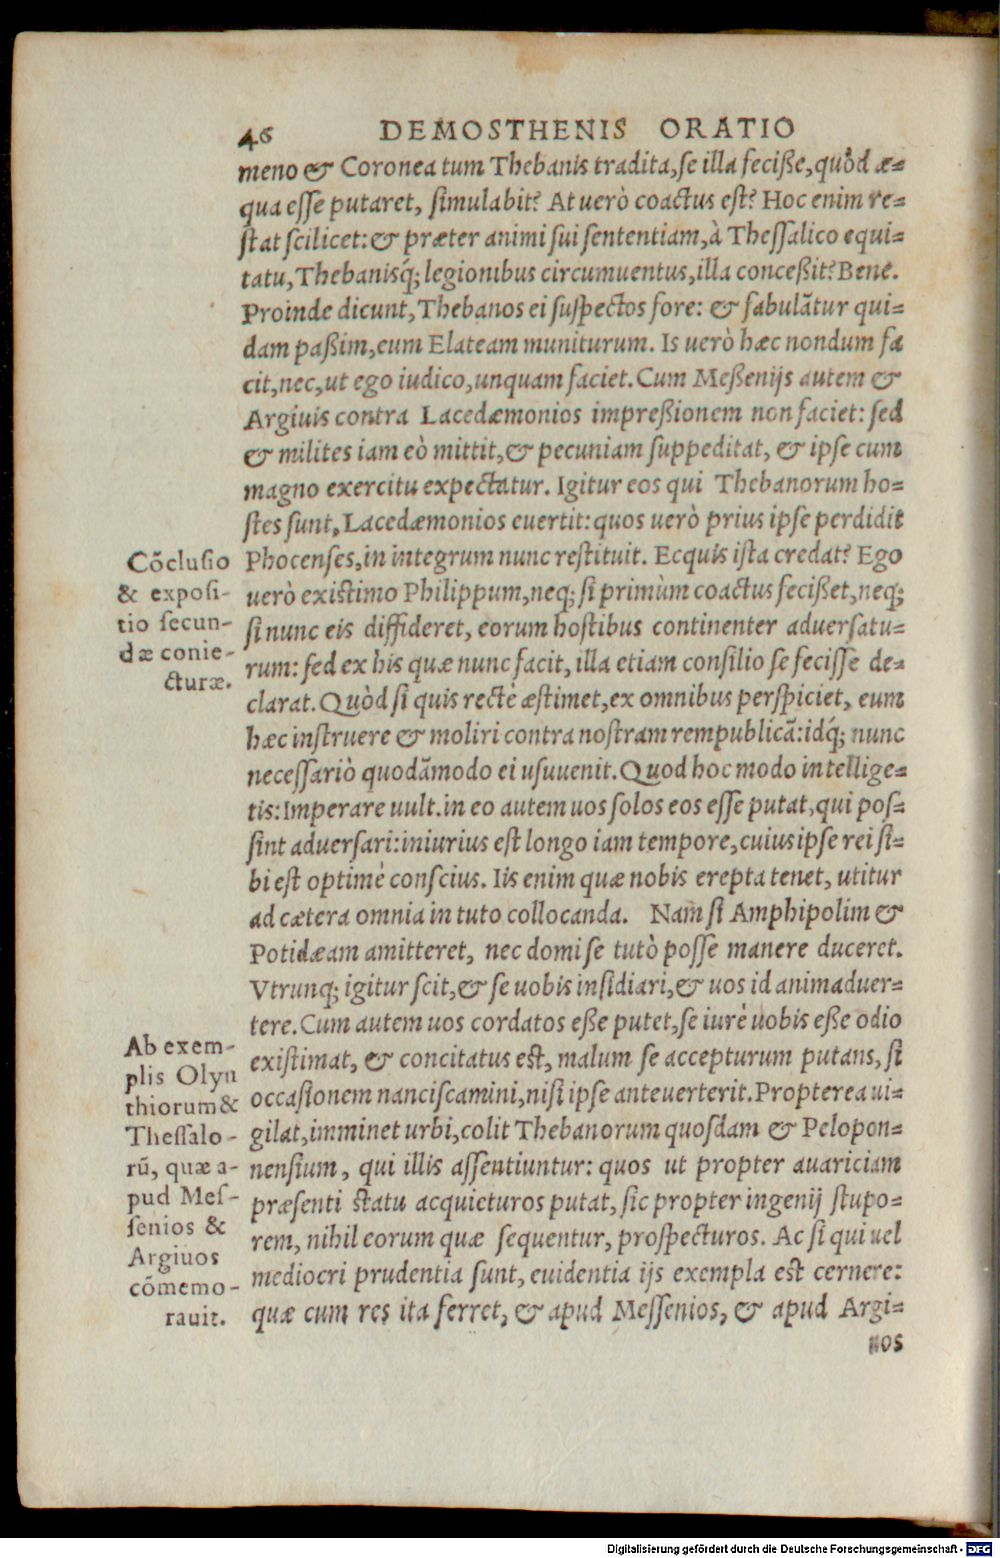 46 DEMOSTHENIS ORATIO
meno & Coronea tum Thebanis tradita, se illa feciße, quòd æ=
qua esse putaret, simulabit? At uerò coactus est? Hoc enim re=
stat scilicet: & præter animi sui sententiam, à Thessalico equi=
tatu, Thebanisq́; legionibus circumuentus, illa conceßit? Bene.
Proinde dicunt, Thebanos ei suspectos fore: & fabulãtur qui=
dam paßim, eum Elateam muniturum. Is uerò hæc nondum fa
cit, nec, ut ego iudico, unquam faciet. Cum Meßenijs autem &
Argiuis contra Lacedæmonios impreßionem non faciet: sed
& milites iam eò mittit, & pecuniam suppeditat, & ipse cum
magno exercitu expectatur. Igitur eos qui Thebanorum ho=
stes sunt, Lacedæmonios euertit: quos uerò prius ipse perdidit
Phocenses, in integrum nunc restituit. Ecquis ista credat? Ego
uerò existimo Philippum, neq; si primùm coactus fecißet, neq;
si nunc eis diffideret, eorum hostibus continenter aduersatu=
rum: sed ex his quæ nunc facit, illa etiam consilio se fecisse de=
clarat. Quòd si quis rectè æstimet, ex omnibus perspiciet, eum
hæc instruere & moliri contra nostram rempublicã: idq́; nunc
necessariò quodãmodo ei usuuenit. Quod hoc modo intellige=
tis: Imperare uult. in eo autem uos solos eos esse putat, qui pos=
sint aduersari: iniurius est longo iam tempore, cuius ipse rei si=
bi est optimè conscius. Iis enim quæ nobis erepta tenet, utitur
ad cætera omnia in tuto collocanda. Nam si Amphipolim &
Potidæam amitteret, nec domi se tutò posse manere duceret.
Vtrunq; igitur scit, & se uobis insidiari, & uos id animaduer=
tere. Cum autem uos cordatos eße putet, se iurè uobis eße odio
existimat, & concitatus est, malum se accepturum putans, si
occasionem nanciscamini, nisi ipse anteuerterit. Propterea ui=
gilat, imminet urbi, colit Thebanorum quosdam & Pelopon=
nensium, qui illis assentiuntur: quos ut propter auariciam
præsenti statu acquieturos putat, sic propter ingenij stupo=
rem, nihil eorum quæ sequentur, prospecturos. Ac si qui uel
mediocri prudentia sunt, euidentia ijs exempla est cernere:
quæ cum res ita ferret, & apud Messenios, & apud Argi=
uos
Cõclusio
& exposi-
tio secun-
dæ conie-
cturæ.
Ab exem-
plis Olyn
thiorum &
Thessalo-
rũ, quæ a-
pud Mes-
senios &
Argiuos
cõmemo-
rauit.
Digitalisierung gefördert durch die Deutsche Forschungsgemeinschaft - DFG